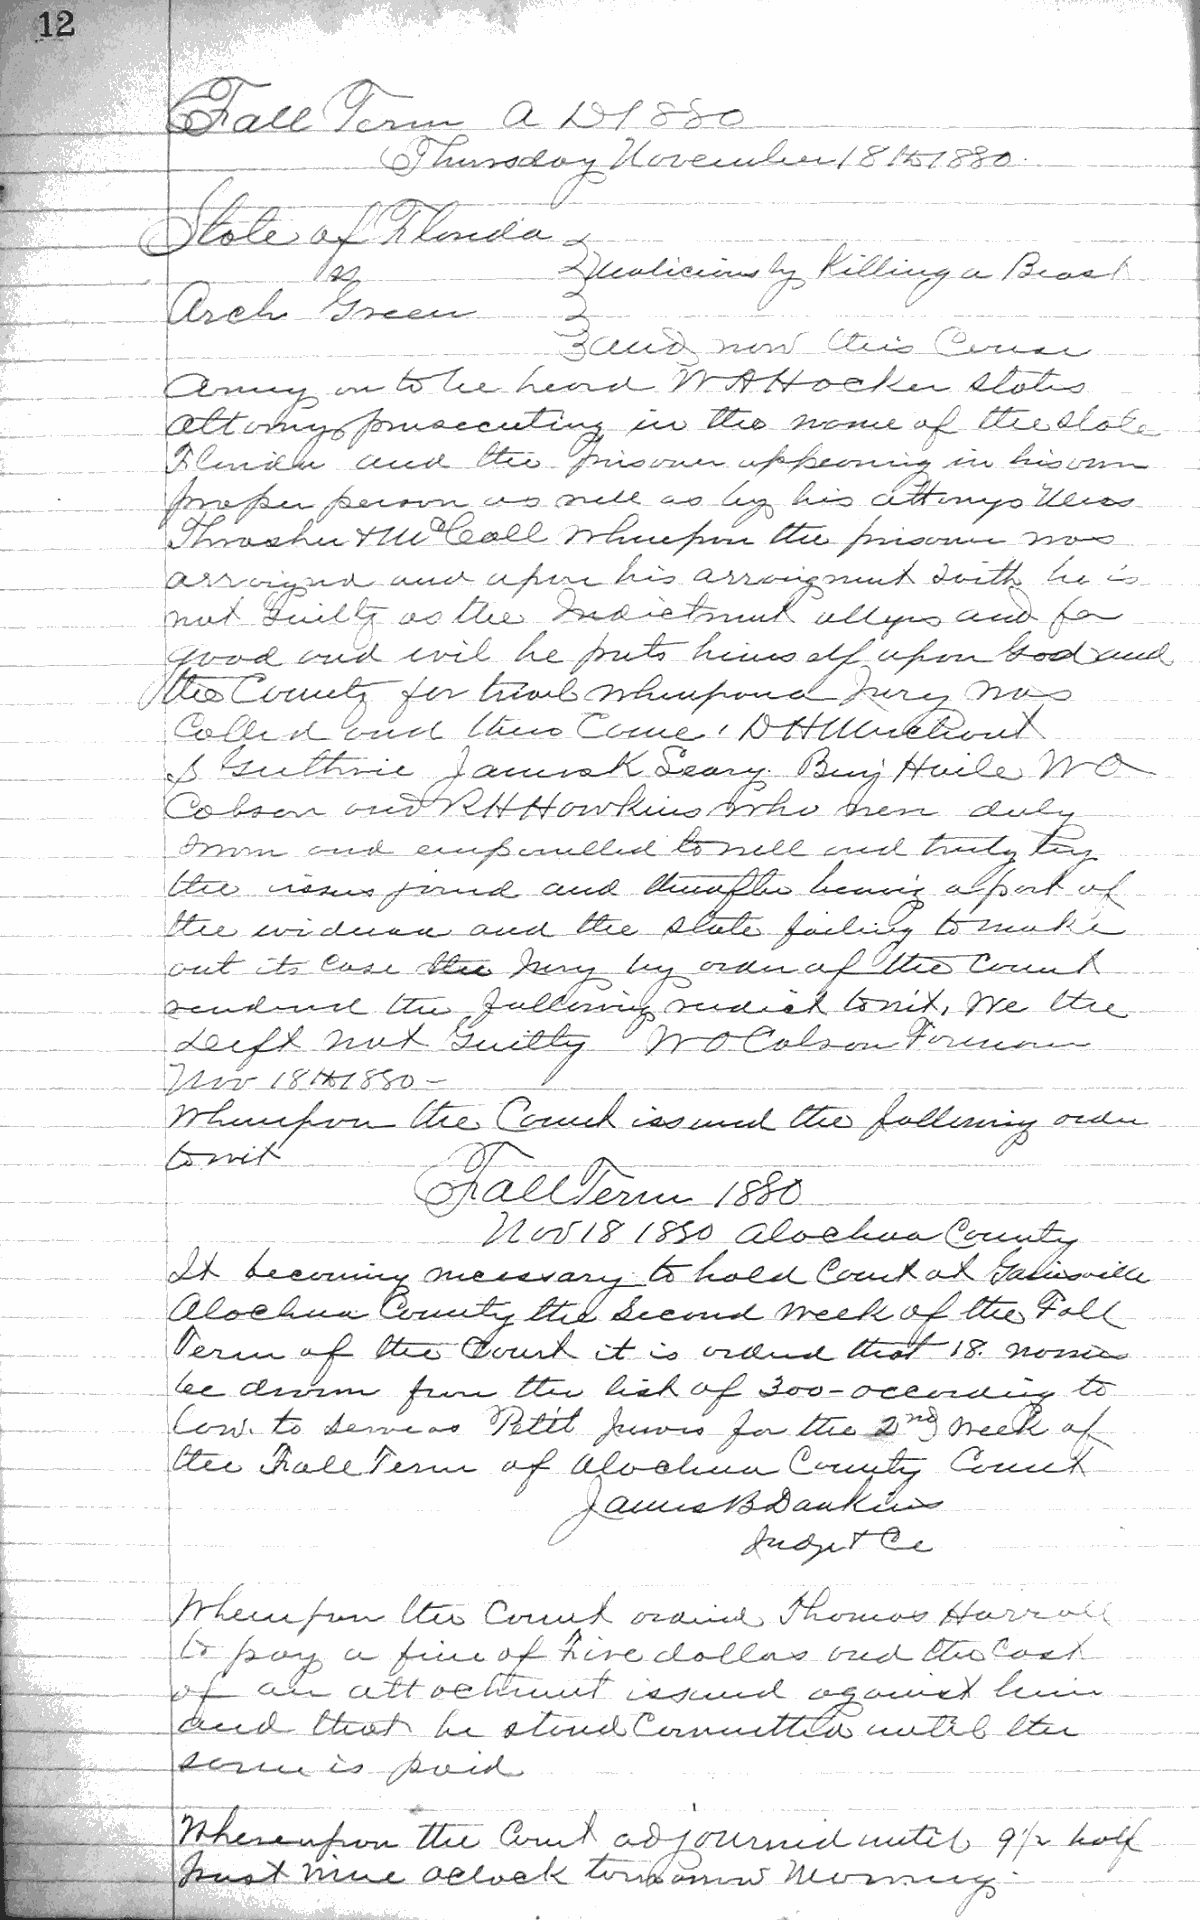 12
Fall Term A D 1880
Thursday November 18th 1880.
State of Florida
vs
Maliciously Killing a Beast
Arch Green
and now this Cause
Coming on to be heard W A Hocker states
attorny prosecuting in the name of the State
Florida and the prisoner appearing in his own
proper person as well as by his attorneys Mess
Thrasher & McCall Whereupon the prisoner was
arraigned and upon his arraignment saith he is
not Guilty as the Indictment alleges and for
good and evil he puts himself upon God and
the County for trial whereupon a Jury was
Called and there Came, D H
J Guthrie James K Seary Benj Haile W O
Colson and R H Hawkins who were duly
sworn and empanelled to well and truly try
the issues joined and thereafter hearing a part of
the evidence and the state failing to make
out its case the Jury by order of the Court
rendered the following verdict towit, We the
Deeft Not Guilty W O Colson Foreman
Nov 18th 1880 -
Whereupon the Court issued the following order
towit
Fall Term 1880
Nov 18 1880 Alachua County
It becoming necessary to hold Court at Gainsville
Alachua County the Second Week of the Fall
Term of the Court it is ordered that 18. names
be drawn from the list of 300 - according to
Law. to serve as Petit Jurors for the 2nd Week of
the Fall Term of Alachua County Court
James B Dawkins
Judge & Cc
Whereupon the Court ordered Thomas Harrell
to pay a fine of Five dollars and the Cost
of an attachment issued against him
and that he stand Committed until the
same is paid
Whereupon the Court adjourned until 9 1/2 half
past nine oclock tomorrow Morning.